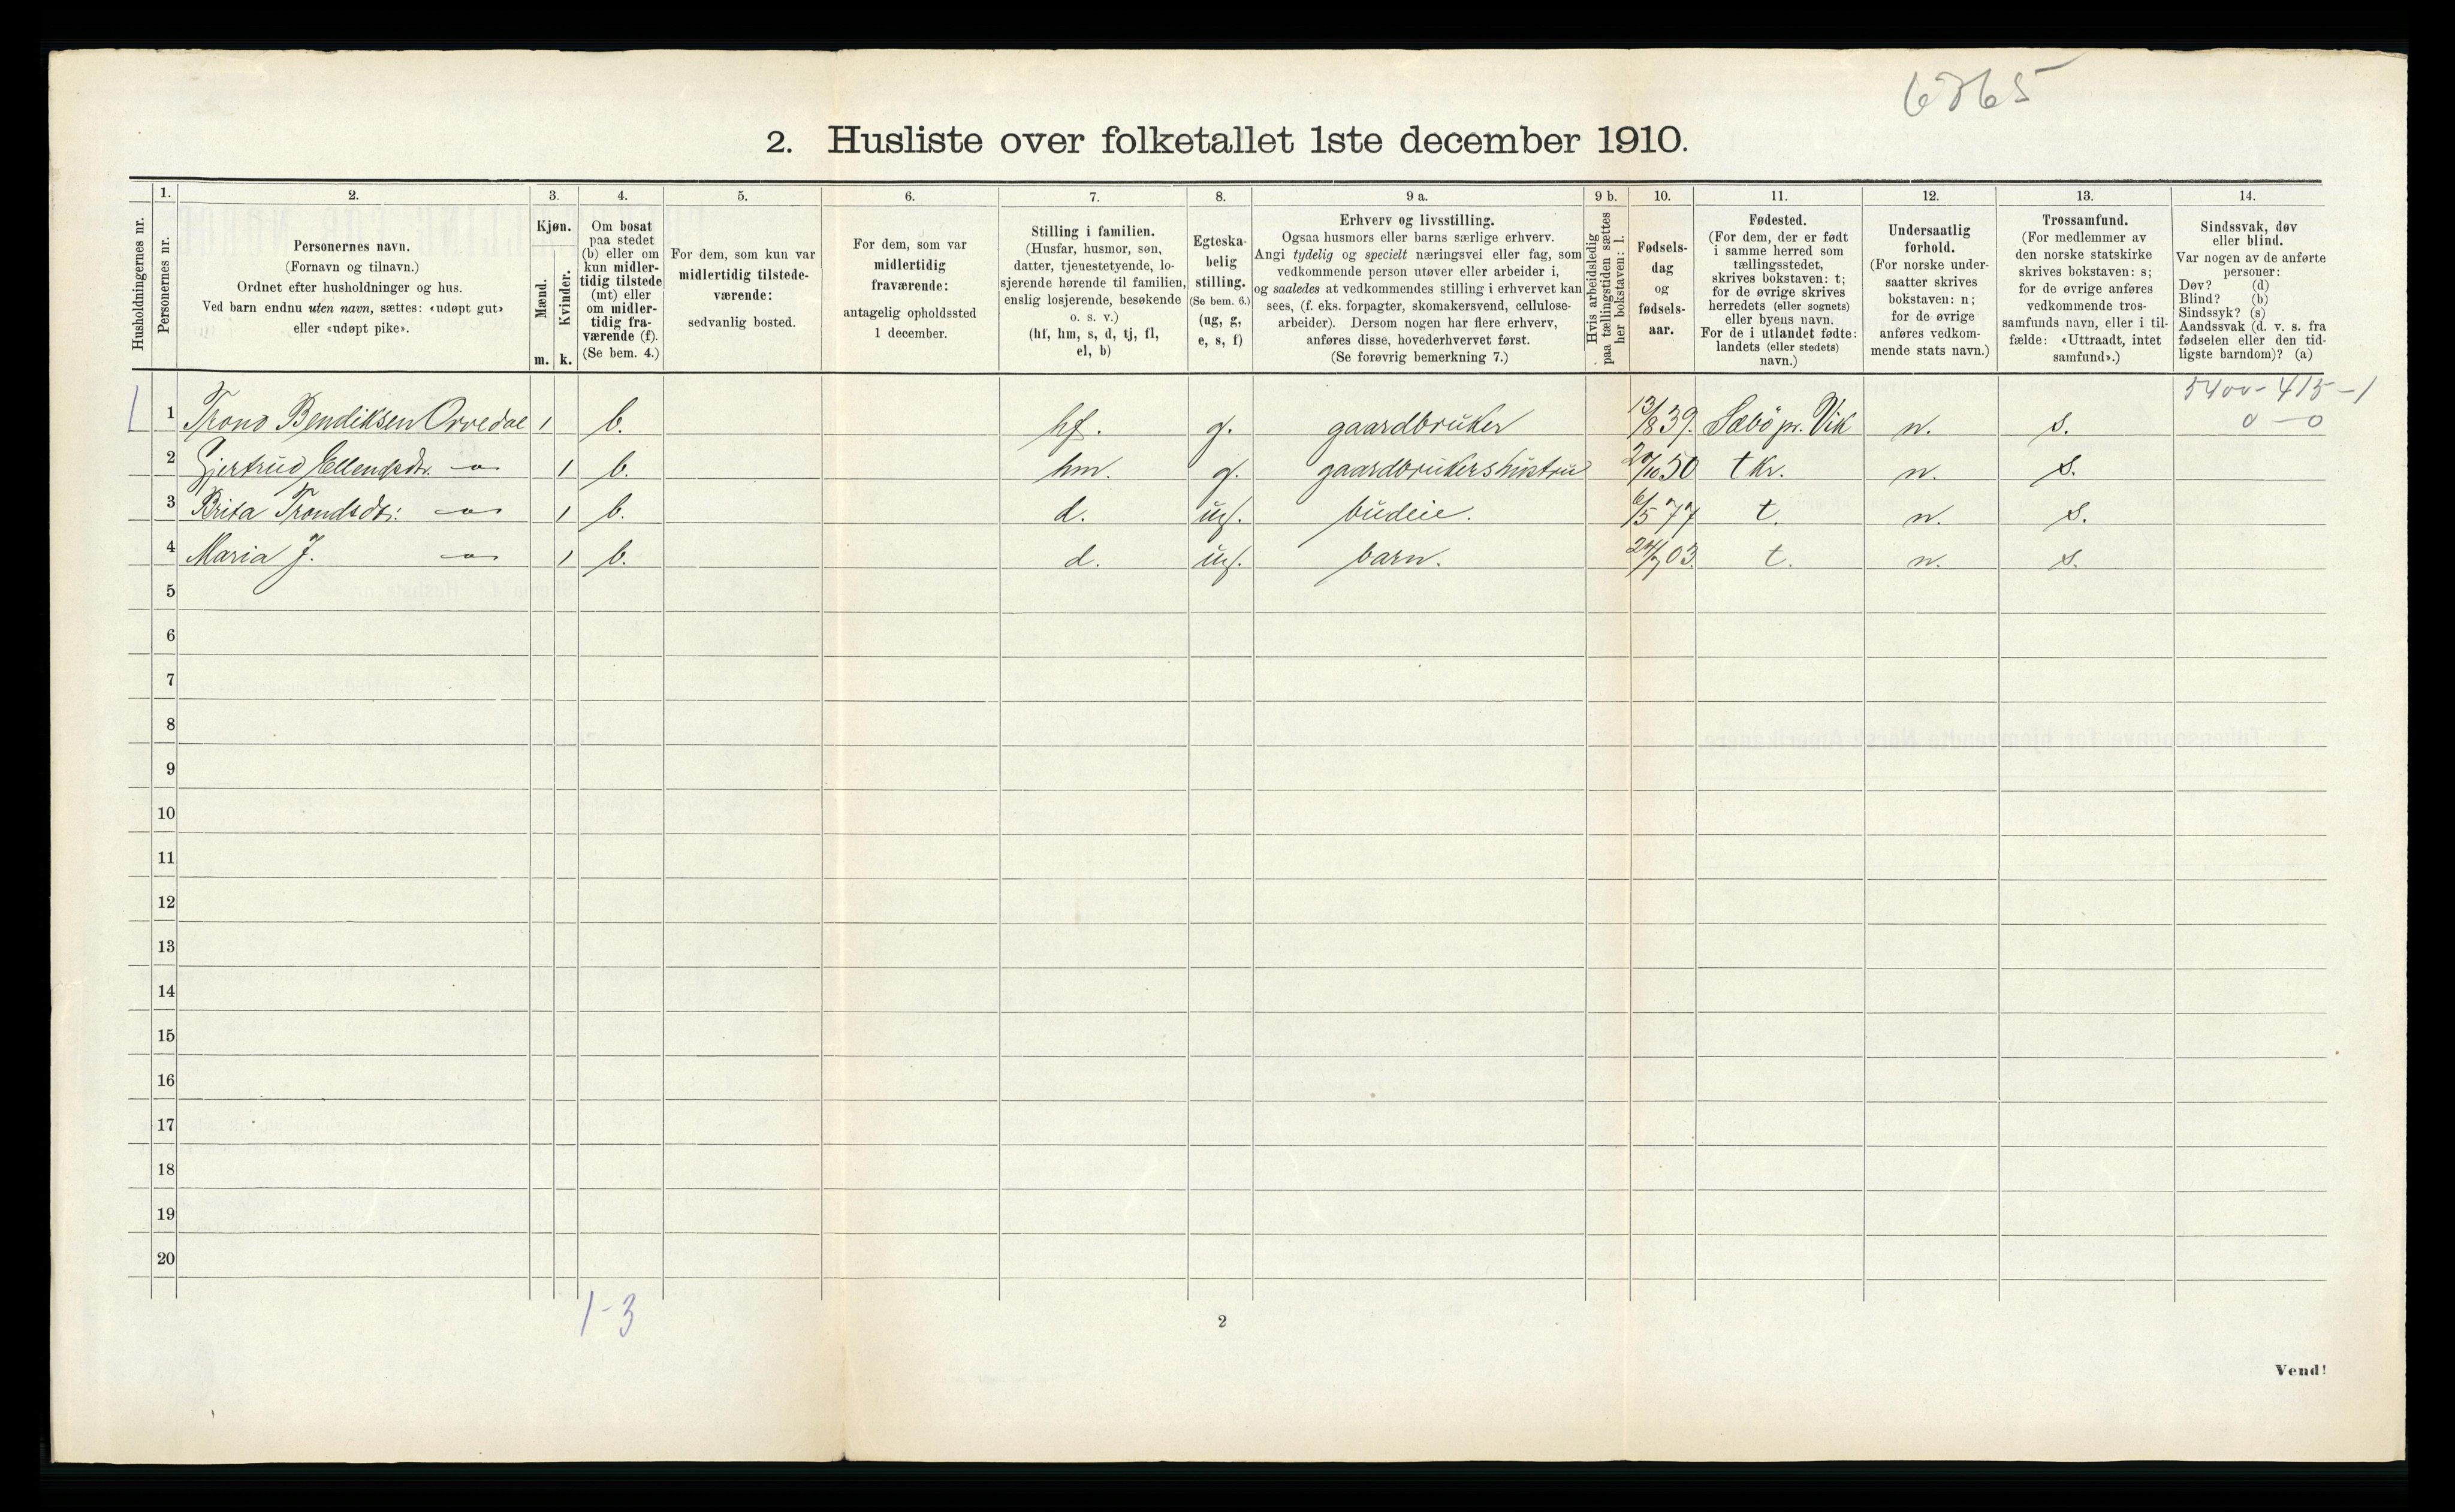 6865
2. Husliste over folketallet 1ste december 1910.
Husholdningernes nr.
1.
Personernes nr.
2.
Personernes navn.
(Fornavn og tilnavn.)
Ordnet efter husholdninger og hus.
Ved barn endnu uten navn, sættes: «udøpt gut»
eller «udøpt pike».
3.
Kjøn.
Mænd.
Kvinder.
m. k.
4.
Om bosat
paa stedet
(b) eller om
kun midler-
tidig tilstede
(mt) eller
om midler-
tidig fra-
værende (f).
(Se bem. 4.)
5.
For dem, som kun var
midlertidig tilstede-
værende:
sedvanlig bosted.
6.
For dem, som var
midlertidig
fraværende:
antagelig opholdssted
1 december.
7.
Stilling i familien.
(Husfar, husmor, søn,
datter, tjenestetyende, lo-
sjerende hørende til familien,
enslig losjerende, besøkende
o. s. v.)
(hf, hm, s, d, tj, fl,
el, b)
8.
Egteska-
belig
stilling.
(Se bem. 6.)
(ug, g,
e, s, f)
9 a.
Erhverv og livsstilling.
Ogsaa husmors eller barns særlige erhverv.
Angi tydelig og specielt næringsvei eller fag, som
vedkommende person utøver eller arbeider i,
og saaledes at vedkommendes stilling i erhvervet kan
sees, (f. eks. forpagter, skomakersvend, cellulose-
arbeider). Dersom nogen har flere erhverv,
anføres disse, hovederhvervet først.
(Se forøvrig bemerkning 7.)
9 b.
Hvis arbeidsledig
paa tællingstiden sættes
her bokstaven: l.
10.
Fødsels-
dag
og
fødsels-
aar.
11.
Fødested.
(For dem, der er født
i samme herred som
tællingsstedet,
skrives bokstaven: t;
for de øvrige skrives
herredets (eller sognets)
eller byens navn.
For de i utlandet fødte:
landets (eller stedets)
navn.)
12.
Undersaatlig
forhold.
(For norske under-
saatter skrives
bokstaven: n;
for de øvrige
anføres vedkom-
mende stats navn.)
13.
Trossamfund.
(For medlemmer av
den norske statskirke
skrives bokstaven: s;
for de øvrige anføres
vedkommende tros-
samfunds navn, eller i til-
fælde: «Uttraadt, intet
samfund».)
14.
Sindssvak, døv
eller blind.
Var nogen av de anførte
personer:
Døv? (d)
Blind? (b)
Sindssyk? (s)
Aandssvak (d. v. s. fra
fødselen eller den tid-
ligste barndom)? (a)
5400-415-1
0-0
1 1 Trond Bendiksen Orvedal 1 b. hf. g. gaardbruker 13/8 39. Sæbö pr. Vik n. s.
2 Gjertrud Ellendsdtr. -"- 1 b. hm. g. gaardbrukershustru 20/10 50 t Kr. n. s.
3 Brita Trondsdtr. -"- 1 b. d. ug. budeie. 6/5 77 t. n. s.
4 Maria J. -"- 1 b. d. ug. barn. 24/7 03. t. n. s.
5
6
7
8
9
10
11
12
13
14
15
16
17
18
19
20
1-3
2
Vend!